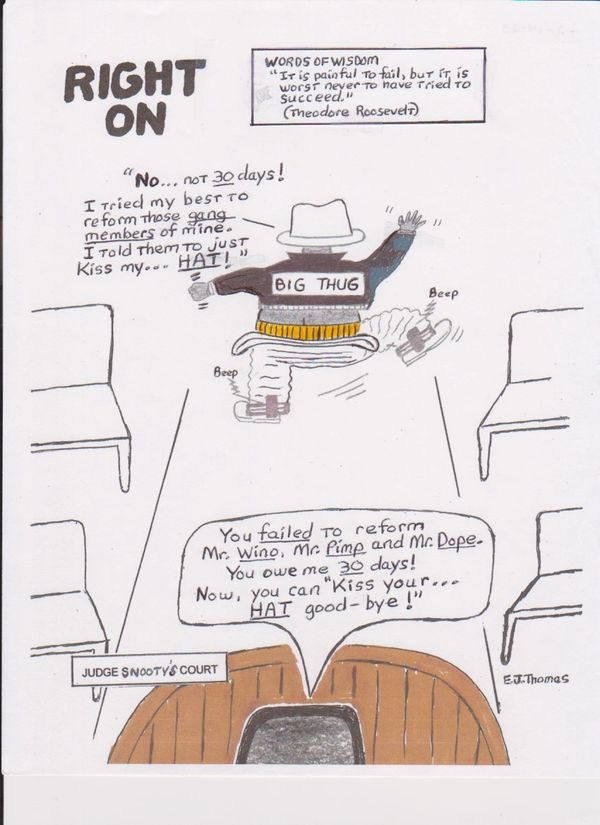 RIGHT
ON
WORDS OF WISDOM
"It is painful to fail, but it is
worst never to have tried to
succeed."
(Theodore Roosevelt)
"No... not 30 days!
I tried my best to
reform those gang
members of mine.
I told them to just
Kiss my... HAT!"
BIG THUG
Beep
Beep
You failed to reform
Mr. Wino, Mr. Pimp and Mr. Dope.
You owe me 30 days!
Now, you can "Kiss your...
HAT good-bye!"
JUDGE SNOOTY'S COURT
E.J. Thomas